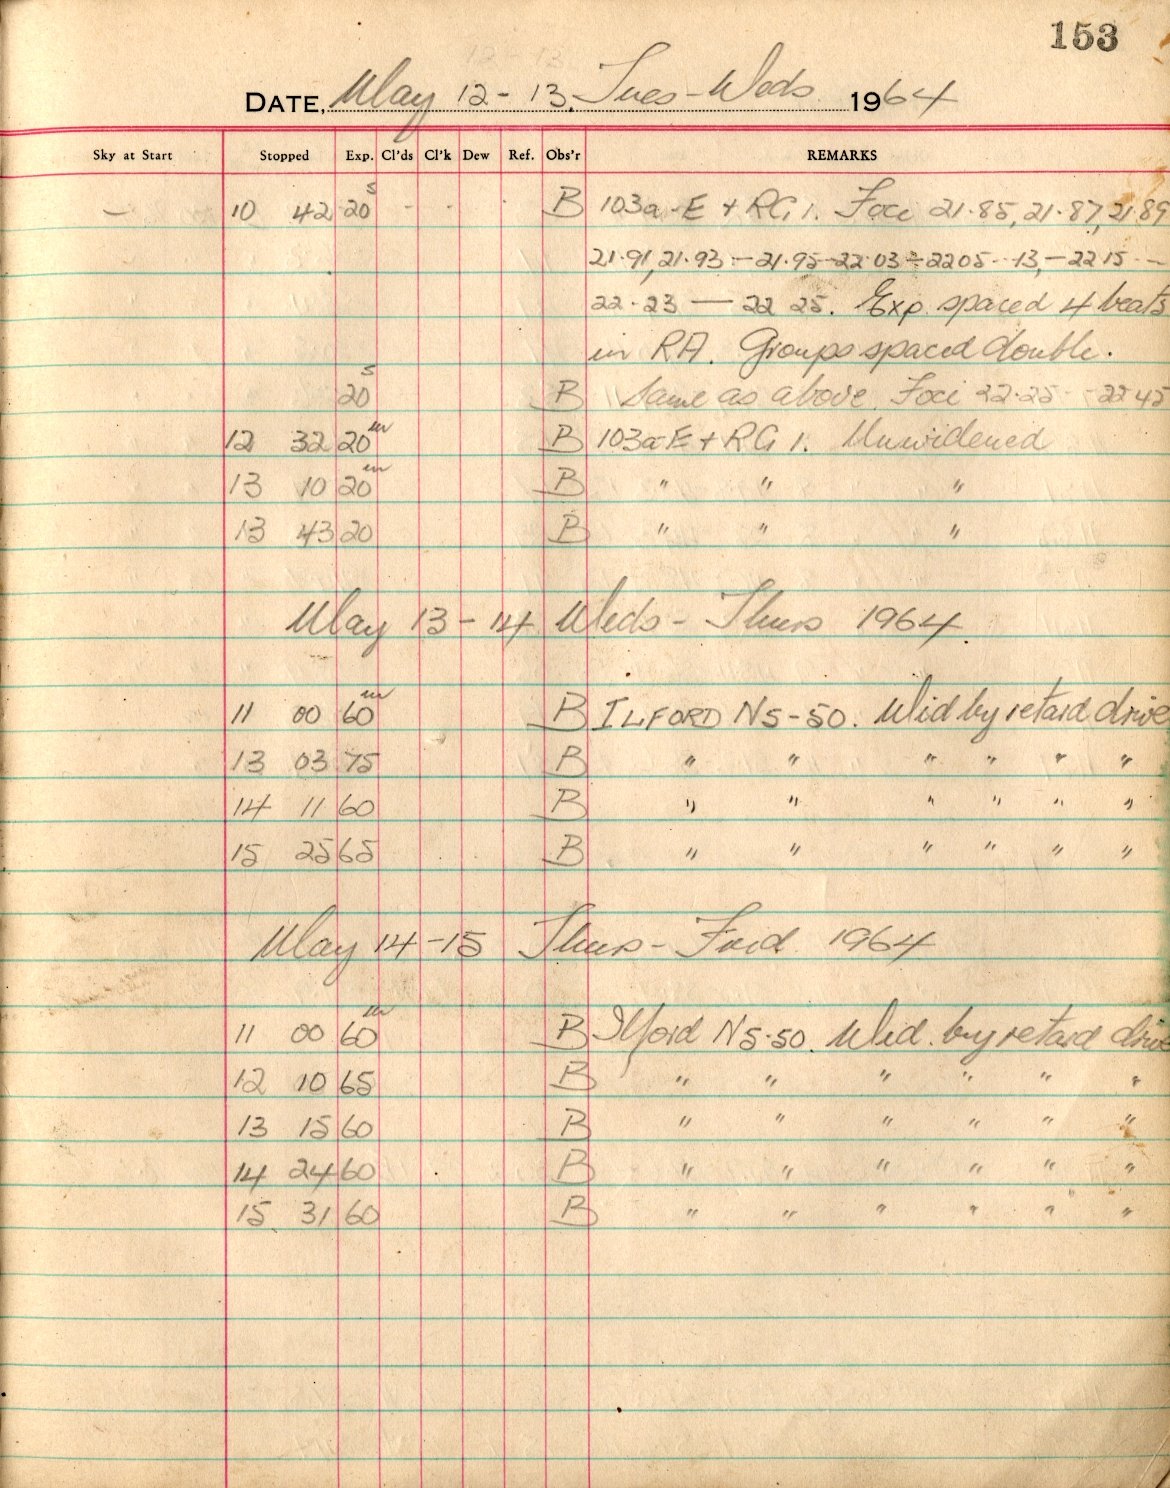 153
DATE, May 12-13, Tues-Weds 1964
Sky at Start Stopped Exp. Cl'ds Cl'k Dew Ref. Obs'r REMARKS
— 10 42 20s - - B 103a-E + RG1. Foci 21.85, 21.87, 21.89
21.91, 21.93 - 21.95 - 22.03 - 22.05 - .13, - 22.15 - -
22.23 — 22.25. Exp. spaced 4 beats
in RA. Groups spaced double.
20s B Same as above Foci 22.25 - 22.45
12 32 20m B 103a-E + RG1. Unwidened
13 10 20m B " " "
13 43 20 B " " "
May 13-14 Weds - Thurs 1964.
11 00 60m B ILFORD N5-50. Wid by retard drive
13 03 75 B " " " " " "
14 11 60 B " " " " " "
15 25 65 B " " " " " "
May 14-15 Thurs - Frid 1964
11 00 60m B Ilford N5-50. Wid. by retard drive
12 10 65 B " " " " " "
13 15 60 B " " " " " "
14 24 60 B " " " " " "
15 31 60 B " " " " " "